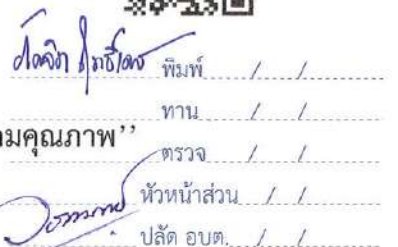 พิมพ์ / /
ทาน / /
ามคุณภาพ’’
ตรวจ / /
หัวหน้าส่วน / /
ปลัด อบต. / /